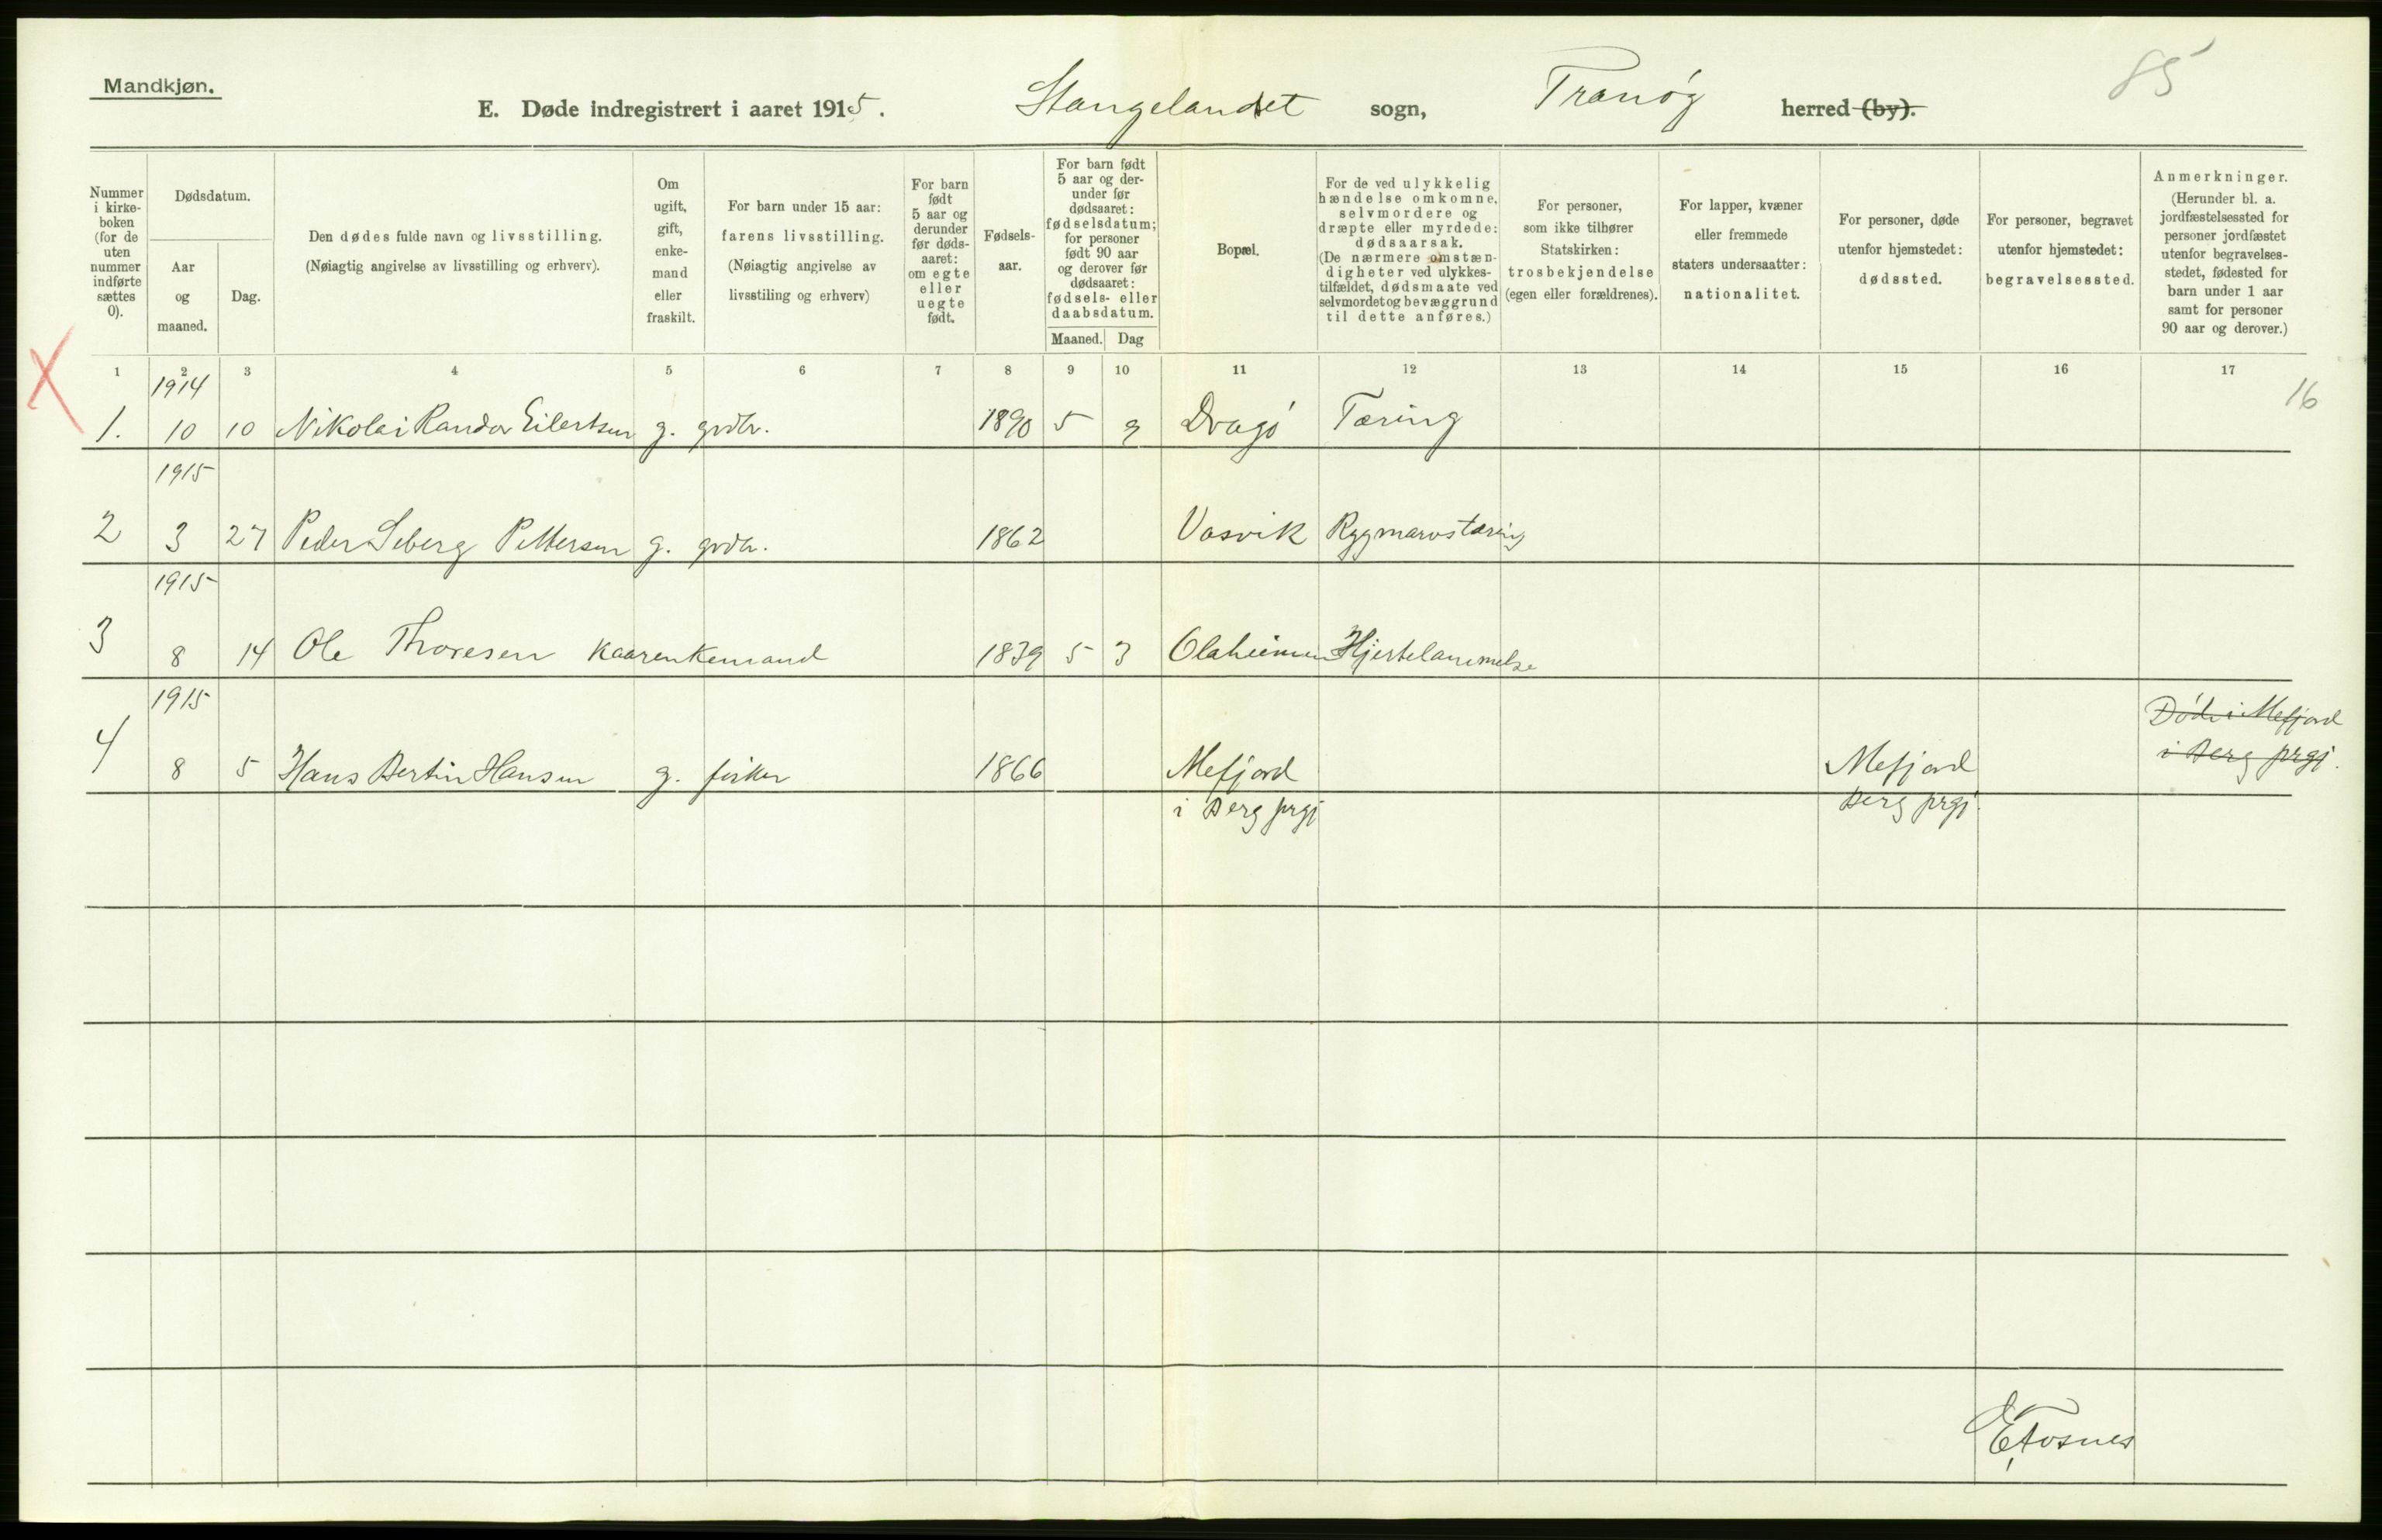 Mandkjøn.
85
E. Døde indregistrert i aaret 1915. Stangelandet sogn, Tranøy herred (by).
Nummer i kirke-boken (for de uten nummer indførte sættes 0).
Dødsdatum.
Aar og maaned.
Dag.
Den dødes fulde navn og livsstilling.
(Nøiagtig angivelse av livsstilling og erhverv).
Om ugift, gift, enke-mand eller fraskilt.
For barn under 15 aar: farens livsstilling.
(Nøiagtig angivelse av livsstiling og erhverv)
For barn født 5 aar og derunder før døds-aaret: om egte eller uegte født.
Fødsels-aar.
For barn født 5 aar og der-under før dødsaaret: fødselsdatum; for personer født 90 aar og derover før dødsaaret: fødsels- eller daabsdatum.
Maaned. Dag
Bopæl.
For de ved ulykkelig hændelse omkomne, selvmordere og dræpte eller myrdede: dødsaarsak.
(De nærmere omstæn-digheter ved ulykkes-tilfældet, dødsmaate ved selvmordet og bevæggrund til dette anføres.)
For personer, som ikke tilhører Statskirken: trosbekjendelse (egen eller forældrenes).
For lapper, kvæner eller fremmede staters undersaatter: nationalitet.
For personer, døde utenfor hjemstedet: dødssted.
For personer, begravet utenfor hjemstedet: begravelsessted.
Anmerkninger.
(Herunder bl. a. jordfæstelsessted for personer jordfæstet utenfor begravelses-stedet, fødested for barn under 1 aar samt for personer 90 aar og derover.)
1 2 3 4 5 6 7 8 9 10 11 12 13 14 15 16 17
16
1914
1. 10 10 Nikolai Randor Eilertsen g. grdbr. 1890 5 9 Dragø Tæring
1915
2 3 27 Peder Seberg Pettersen g. grdbr. 1862 Vasvik Rygmarvstæring
1915
3 8 14 Ole Thoresen kaarenkemand 1839 5 3 Olaheimen Hjertelammelse
1915
4 8 5 Hans Bertin Hansen g. fisker 1866 Mefjord Mefjord Død i Mefjord
i Berg prgj Berg prgj. i Berg prgj.
E Fosnes